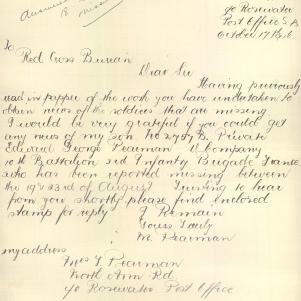 c/o Rosewater
Post Office S.A
October 17 1916
To
Red Cross Bureau
Dear Sir
Having previously
read in papper of the work you have undertaken to
obtain news of the soldiers that are missing
I would be very grateful if you could get
any news of my son No 2757 B. Private
Edward George Pearman D Company
10th Battalion 3rd Infantry Brigade France
who has been reported missing between
the 19th 23rd of August Trusting to hear
from you shortly please find enclosed
stamp for reply I Remain
Yours Truly
M. Pearman
my address
Mrs Pearman
North Arm Rd
c/o Rosewater Post Office